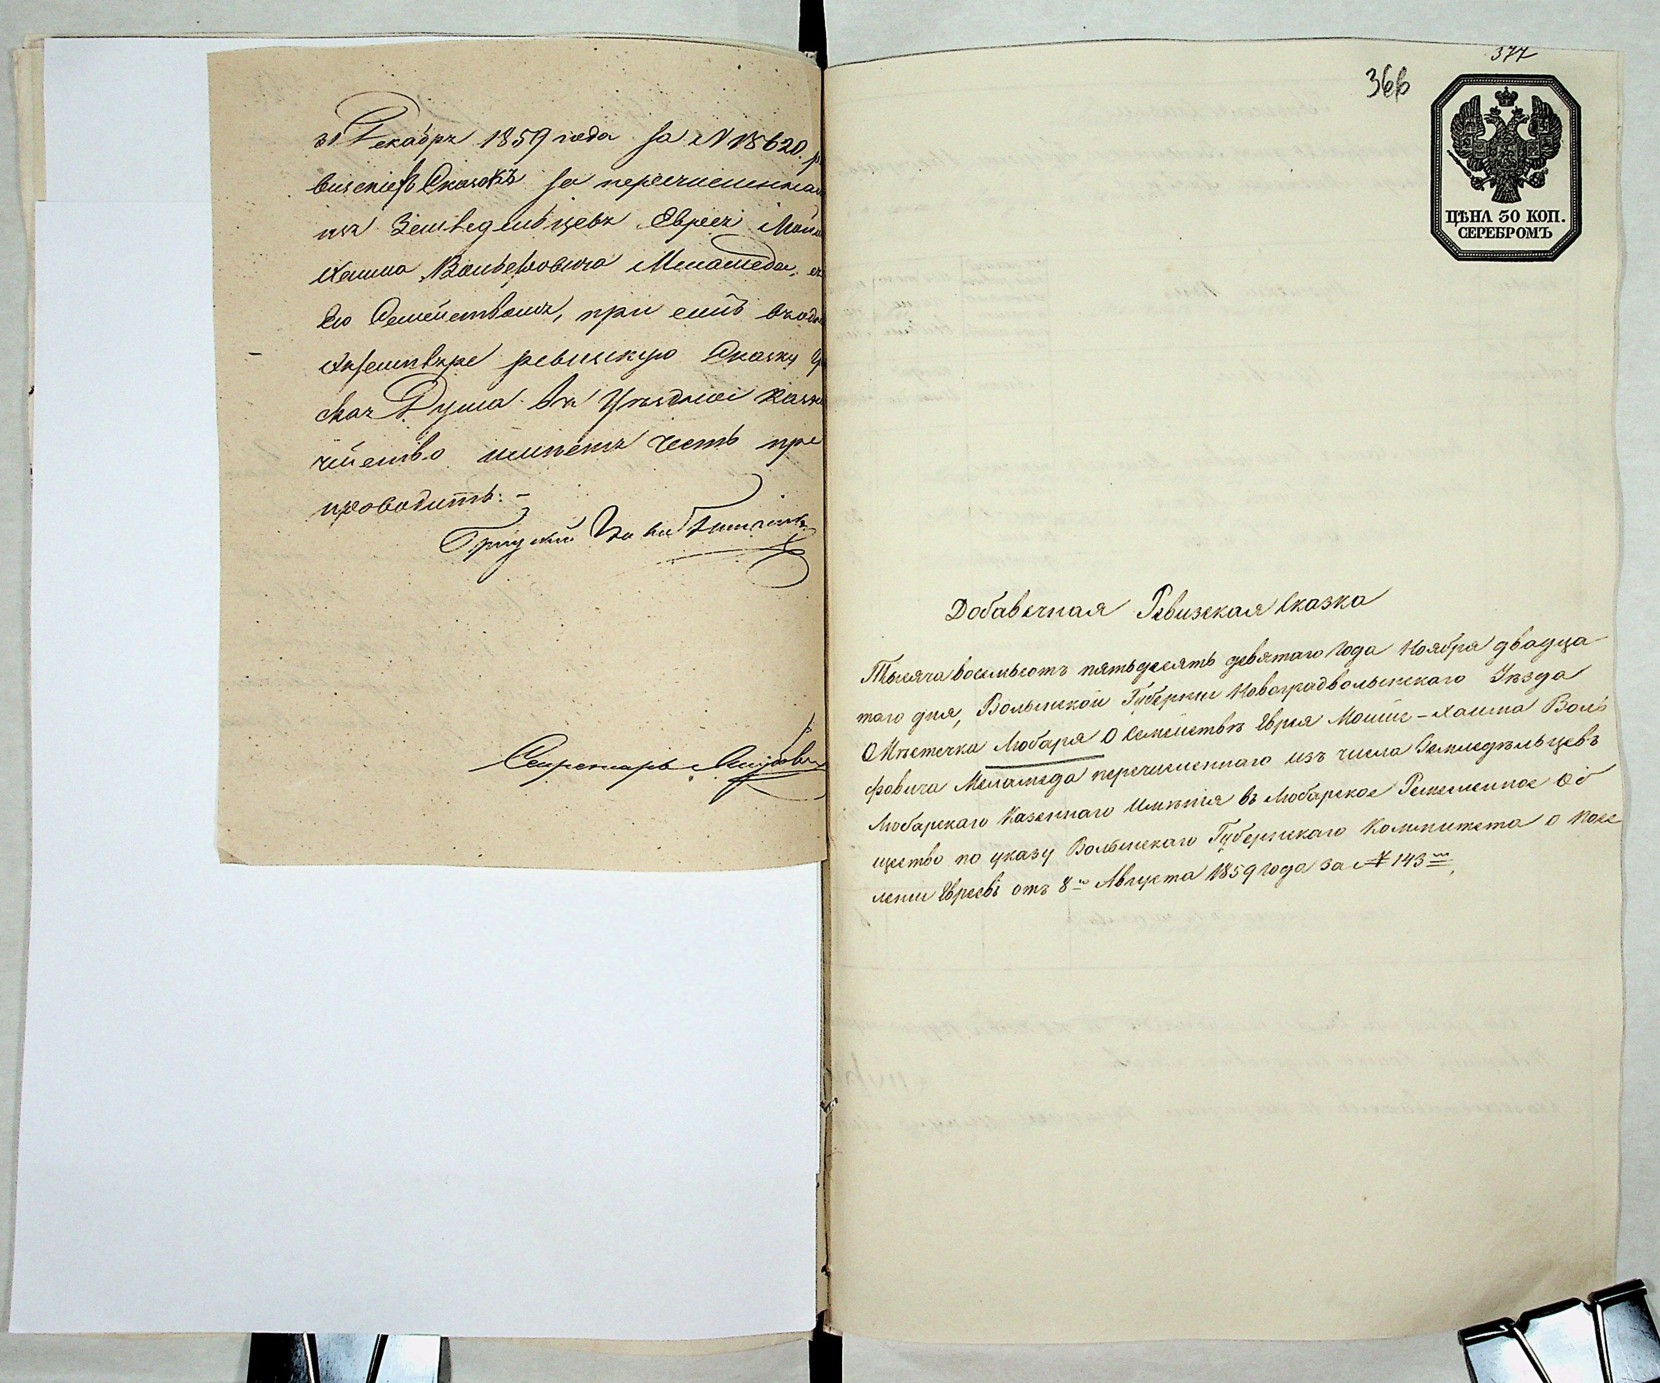 31 Декабря 1859 года за N 18620. ре
визских Сказокъ за перечисленнаго
изъ Земледельцевъ Еврея Мошка
Хаима Вольфовича Меламеда, съ
Его Семействомъ, при семъ въ одномъ
Экземпляре ревискую Сказку
Дума въ Уездное Казна
чейство имеетъ честь пре
проводить. -
Секретарь
377
366
ЦѢНА 30 КОП.
СЕРЕБРОМЪ
Добавечная Ревизская Сказка
Тысяча восемьсотъ пятьдесятъ девятаго года Ноября двадца
таго дня, Волынской Губернии Новоградволынскаго Уезда
Местечка Любаря О Семействѣ Еврея Мошке-Хаима Воль
фовича Меламеда перечисленнаго изъ числа Земледѣльцевъ
Любарскаго Казеннаго Имѣния въ Любарское Ремесленное Об
щество по указу Волынскаго Губернскаго Коммитета о посе
лении Евреевъ отъ 8го Августа 1859 года за № 143мъ,